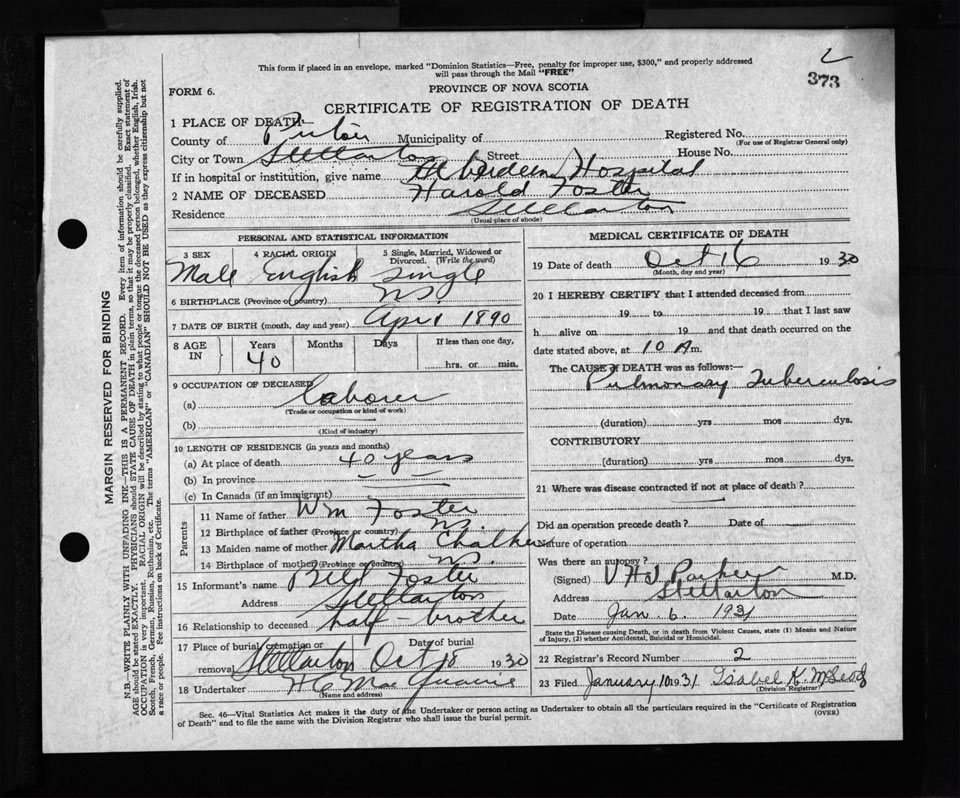 2
373
This form if placed in an envelope, marked "Dominion Statistics—Free, penalty for improper use, $300," and properly addressed
will pass through the Mail "FREE"
FORM 6.
PROVINCE OF NOVA SCOTIA
CERTIFICATE OF REGISTRATION OF DEATH
1 PLACE OF DEATH—
County of Pictou Municipality of Registered No.
(For use of Registrar General only)
City or Town Stellarton Street House No.
If in hospital or institution, give name Aberdeen Hospital
2 NAME OF DECEASED Harold Foster
Residence Stellarton
(Usual place of abode)
PERSONAL AND STATISTICAL INFORMATION
3 SEX 4 RACIAL ORIGIN 5 Single, Married, Widowed or Divorced. (Write the word)
Male English Single
6 BIRTHPLACE (Province or country) N.S.
7 DATE OF BIRTH (month, day and year) April 1890
8 AGE IN Years Months Days If less than one day,
40 hrs. or min.
9 OCCUPATION OF DECEASED
(a) Laborer
(Trade or occupation or kind of work)
(b)
(Kind of industry)
10 LENGTH OF RESIDENCE (in years and months)
(a) At place of death 40 years
(b) In province
(c) In Canada (if an immigrant)
Parents
11 Name of father Wm Foster
12 Birthplace of father (Province or country) N.S.
13 Maiden name of mother Martha Chalker
14 Birthplace of mother (Province or country) N.S.
15 Informant's name Foster
Address Stellarton
16 Relationship to deceased half-brother
17 Place of burial, cremation or removal Stellarton Date of burial Oct 18 1930
18 Undertaker H C MacQuarrie
(Name and address)
MEDICAL CERTIFICATE OF DEATH
19 Date of death Oct 16 1930
(Month, day and year)
20 I HEREBY CERTIFY that I attended deceased from
19 to 19 that I last saw
h alive on 19 and that death occurred on the
date stated above, at 10 A m.
The CAUSE of DEATH was as follows:—
Pulmonary Tuberculosis
(duration) yrs mos dys.
CONTRIBUTORY
(duration) yrs mos dys.
21 Where was disease contracted if not at place of death?
Did an operation precede death? Date of
Nature of operation
Was there an autopsy?
(Signed) M.D.
Address Stellarton
Date Jan. 6 1931
State the Disease causing Death, or in death from Violent Causes, state (1) Means and Nature
of Injury, (2) whether Accidental, Suicidal or Homicidal.
22 Registrar's Record Number 2
23 Filed January 10 1931 Isabel K. McLeod
(Division Registrar)
Sec. 46—Vital Statistics Act makes it the duty of the Undertaker or person acting as Undertaker to obtain all the particulars required in the "Certificate of Registration
of Death" and to file the same with the Division Registrar who shall issue the burial permit.
(OVER)
MARGIN RESERVED FOR BINDING
N.B.—WRITE PLAINLY WITH UNFADING INK—THIS IS A PERMANENT RECORD. Every item of information should be carefully supplied.
AGE should be stated EXACTLY. PHYSICIANS should STATE CAUSE OF DEATH in plain terms, so that it may be properly classified. Exact statement of
OCCUPATION is very important. RACIAL ORIGIN will be described by stating to what people or tongue the deceased person belonged, whether English, Irish,
Scotch, French, German, Russian, Ruthenian, etc. The terms "AMERICAN" or "CANADIAN" SHOULD NOT BE USED as they express citizenship but not
a race or people. See instructions on back of Certificate.